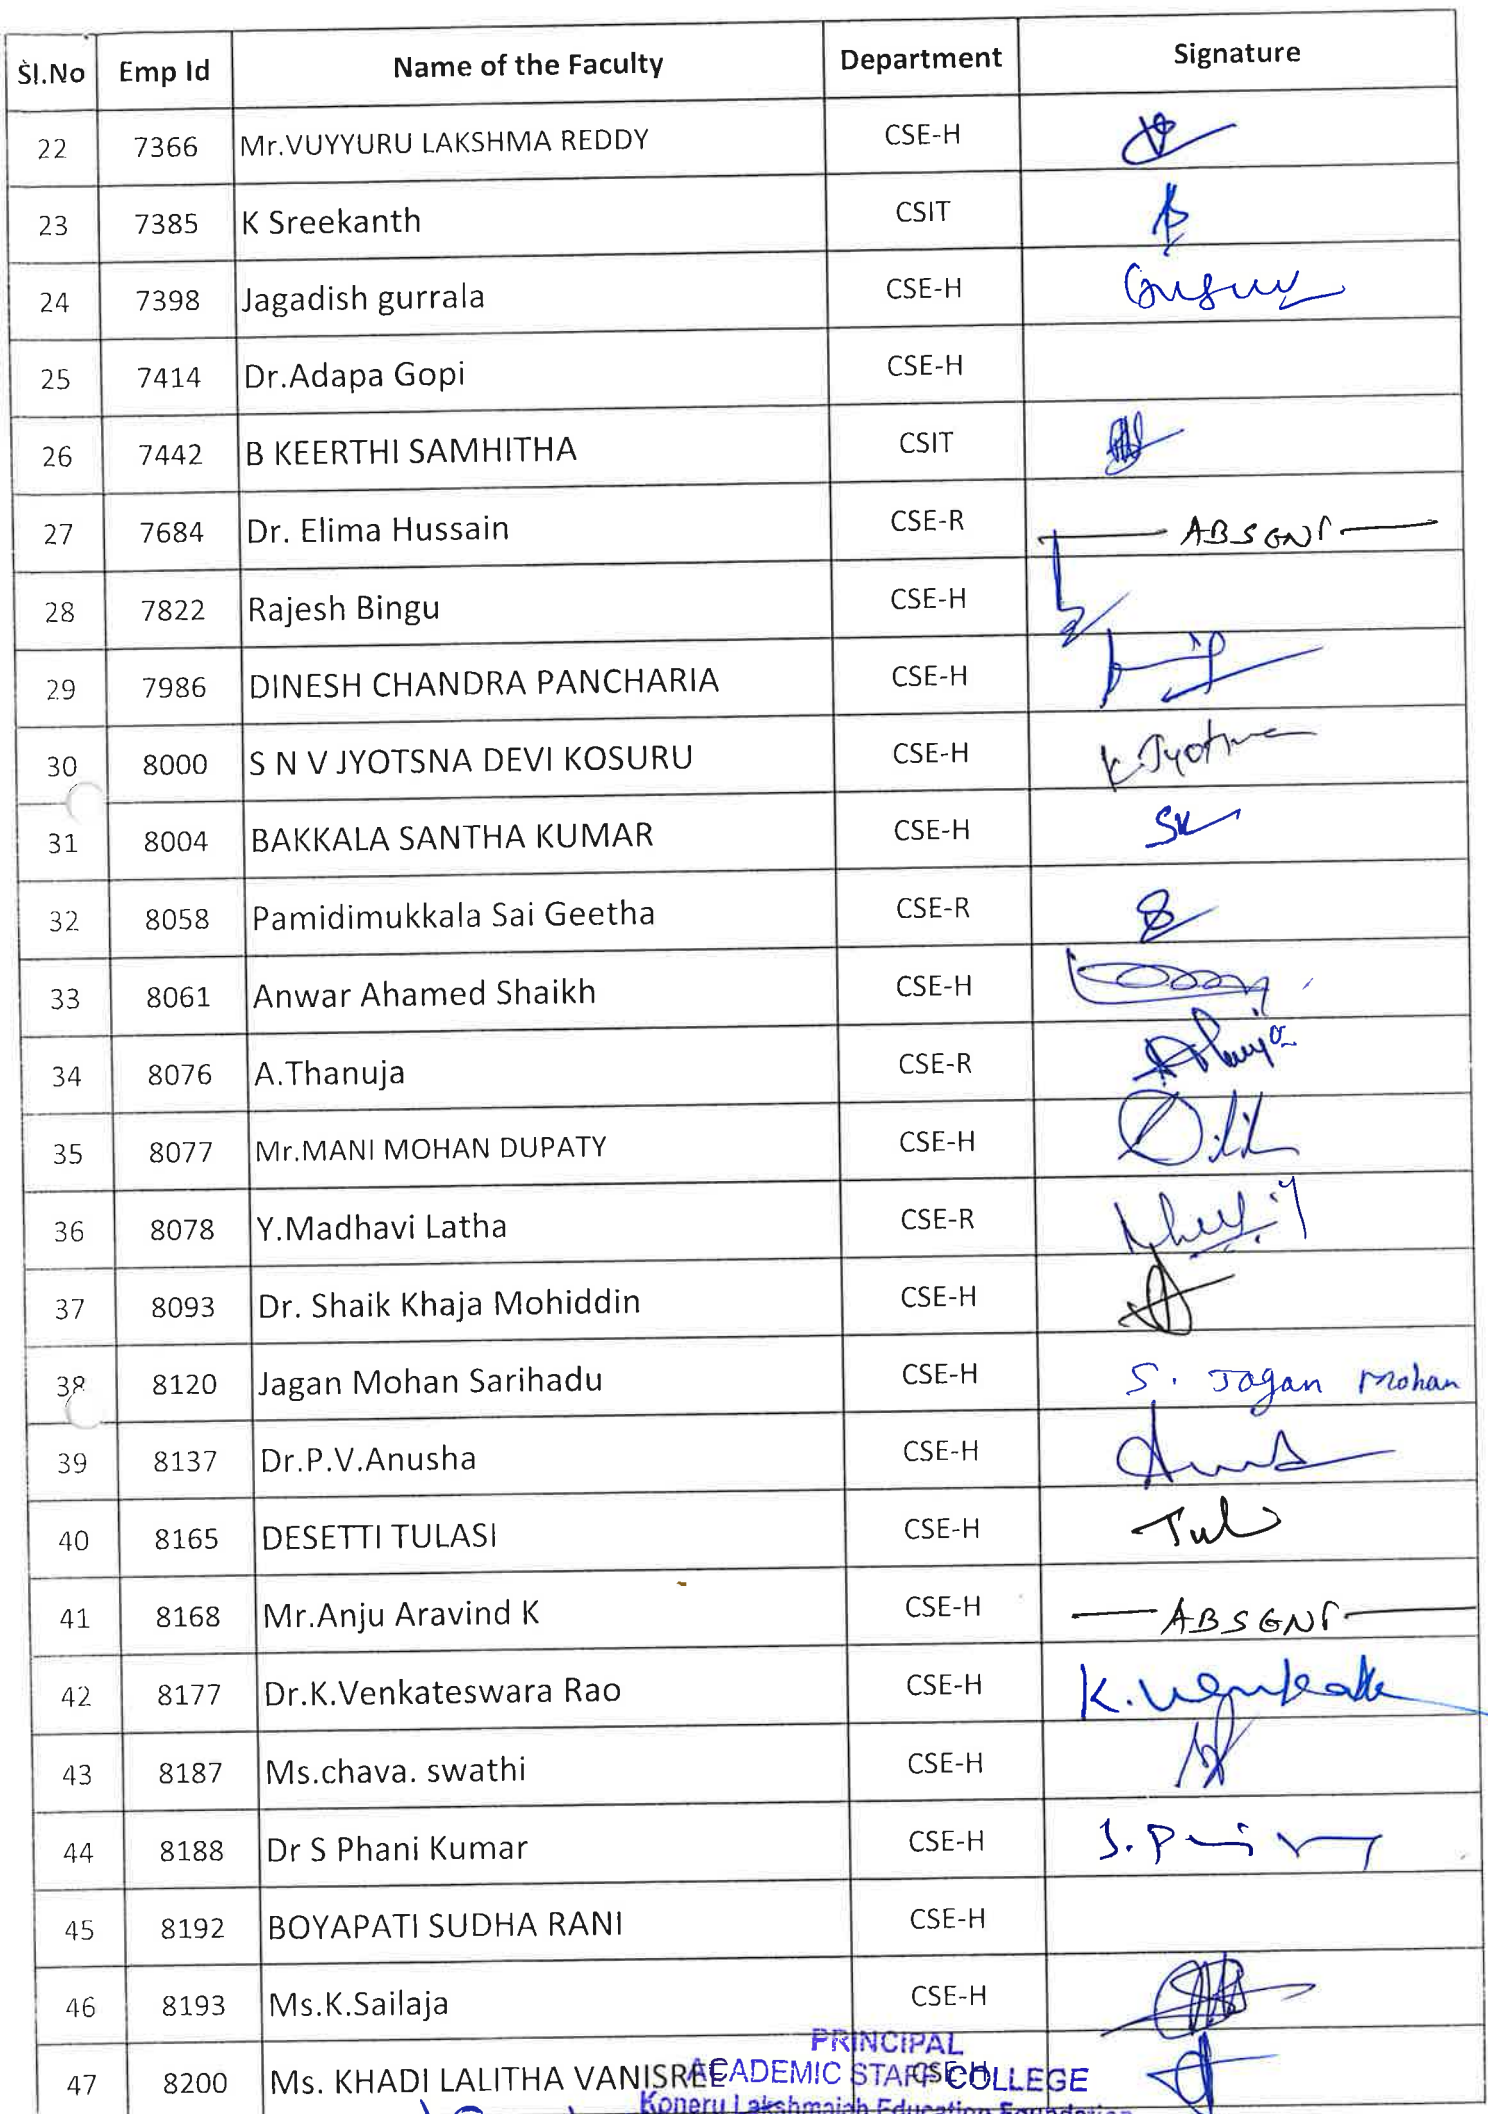 Sl.No Emp Id Name of the Faculty Department Signature
22 7366 Mr.VUYYURU LAKSHMA REDDY CSE-H
23 7385 K Sreekanth CSIT
24 7398 Jagadish gurrala CSE-H
25 7414 Dr.Adapa Gopi CSE-H
26 7442 B KEERTHI SAMHITHA CSIT
27 7684 Dr. Elima Hussain CSE-R ABSENT
28 7822 Rajesh Bingu CSE-H
29 7986 DINESH CHANDRA PANCHARIA CSE-H
30 8000 S N V JYOTSNA DEVI KOSURU CSE-H
31 8004 BAKKALA SANTHA KUMAR CSE-H SK
32 8058 Pamidimukkala Sai Geetha CSE-R
33 8061 Anwar Ahamed Shaikh CSE-H
34 8076 A.Thanuja CSE-R
35 8077 Mr.MANI MOHAN DUPATY CSE-H
36 8078 Y.Madhavi Latha CSE-R
37 8093 Dr. Shaik Khaja Mohiddin CSE-H
38 8120 Jagan Mohan Sarihadu CSE-H S. Jagan Mohan
39 8137 Dr.P.V.Anusha CSE-H
40 8165 DESETTI TULASI CSE-H
41 8168 Mr.Anju Aravind K CSE-H ABSENT
42 8177 Dr.K.Venkateswara Rao CSE-H
43 8187 Ms.chava. swathi CSE-H
44 8188 Dr S Phani Kumar CSE-H
45 8192 BOYAPATI SUDHA RANI CSE-H
46 8193 Ms.K.Sailaja CSE-H
47 8200 Ms. KHADI LALITHA VANISREE CSE-H
PRINCIPAL
ACADEMIC STAFF COLLEGE
Koneru Lakshmaiah Education Foundation